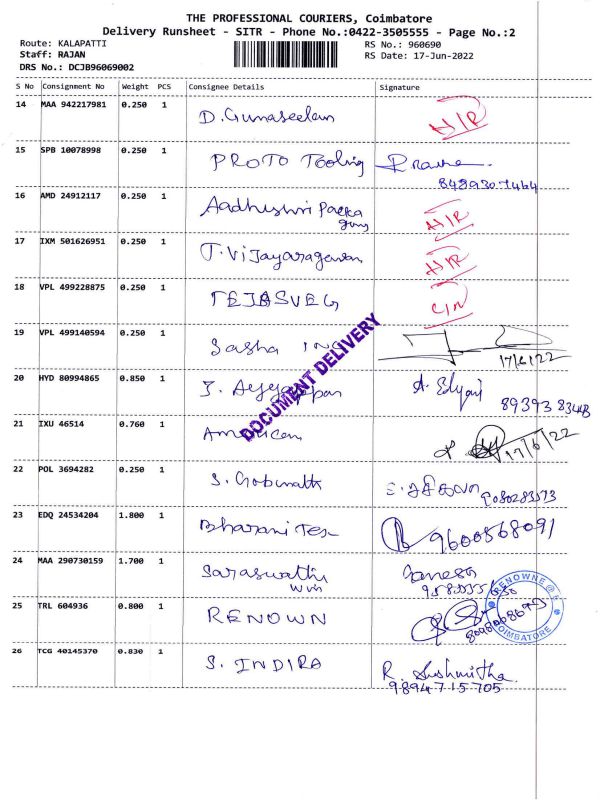 THE PROFESSIONAL COURIERS, Coimbatore
Delivery Runsheet - SITR - Phone No.:0422-3505555 - Page No.:2
Route: KALAPATTI
RS No.: 960690
Staff: RAJAN
RS Date: 17-Jun-2022
DRS No.: DCJB96069002
S No Consignment No Weight PCS Consignee Details Signature
14 MAA 942217981 0.250 1 D. Gunaseelan
15 SPB 10078998 0.250 1 PROTO Tooling
16 AMD 24912117 0.250 1 Aadhishri Packa
ging
17 IXM 501626951 0.250 1 T. Vijayaragavan
18 VPL 499228875 0.250 1 TEJASVEG
19 VPL 499140594 0.250 1 Sasha INC
17/6/22
20 HYD 80994865 0.850 1
21 IXU 46514 0.760 1 American
17/6/22
22 POL 3694282 0.250 1 S. Gobinath
23 EDQ 24534204 1.800 1 Bharani Tex 9600568091
24 MAA 290730159 1.700 1 Saraswathi Ganesa
25 TRL 604936 0.800 1 RENOWN
26 TCG 40145370 0.830 1 S. INDIRA R. Sushmitha
9894715705
DOCUMENT DELIVERY
RENOWNE
COIMBATORE